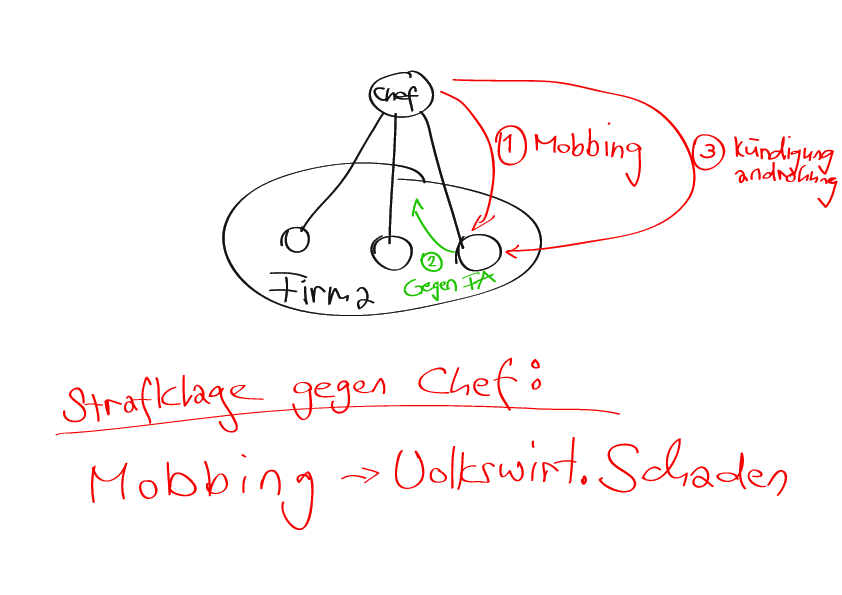 Chef
① Mobbing
③ Kündigung
androhung
②
Gegen FA
Firma
Strafklage gegen Chef:
Mobbing → Volkswirt. Schaden